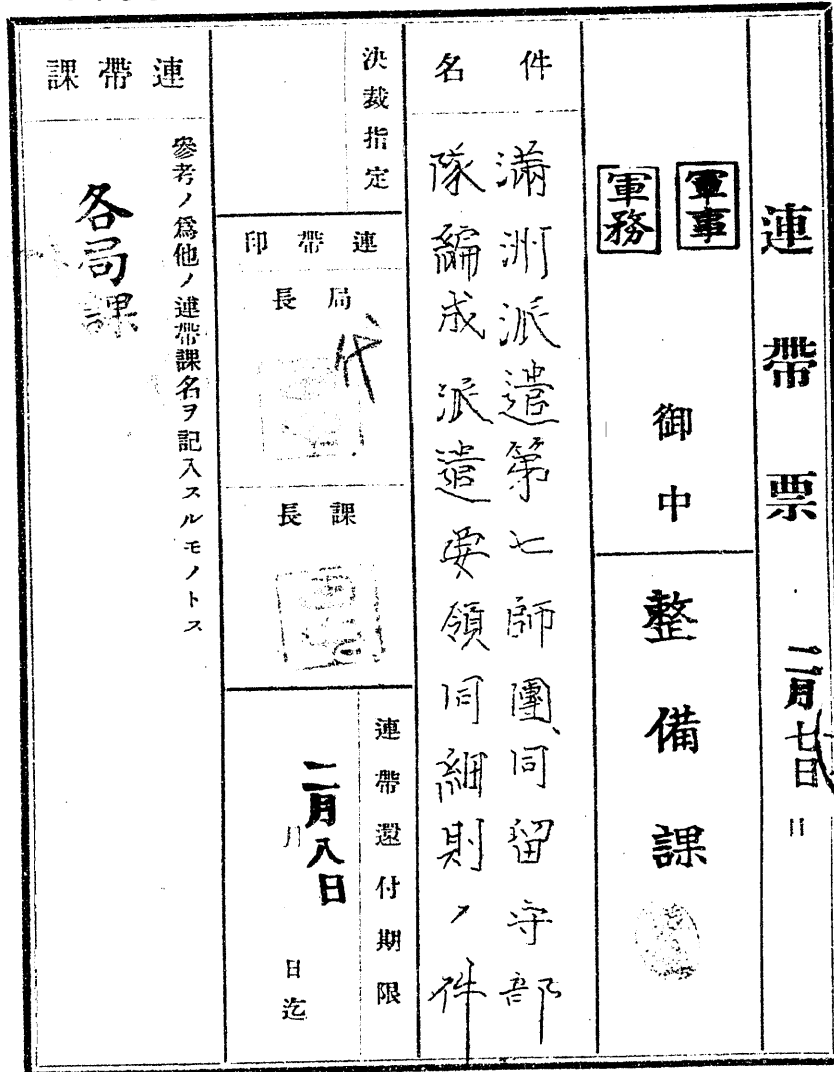 連帶票
月七日
日
軍事
軍務
御中
整備課
件名
滿洲派遣第七師團、同留守部
隊編成派遣要領同細則ノ件
決裁指定
連帶印
局長
代
課長
連帶還付期限
二月八日
月
日迄
連帶課
參考ノ爲他ノ連帶課名ヲ記入スルモノトス
各局課